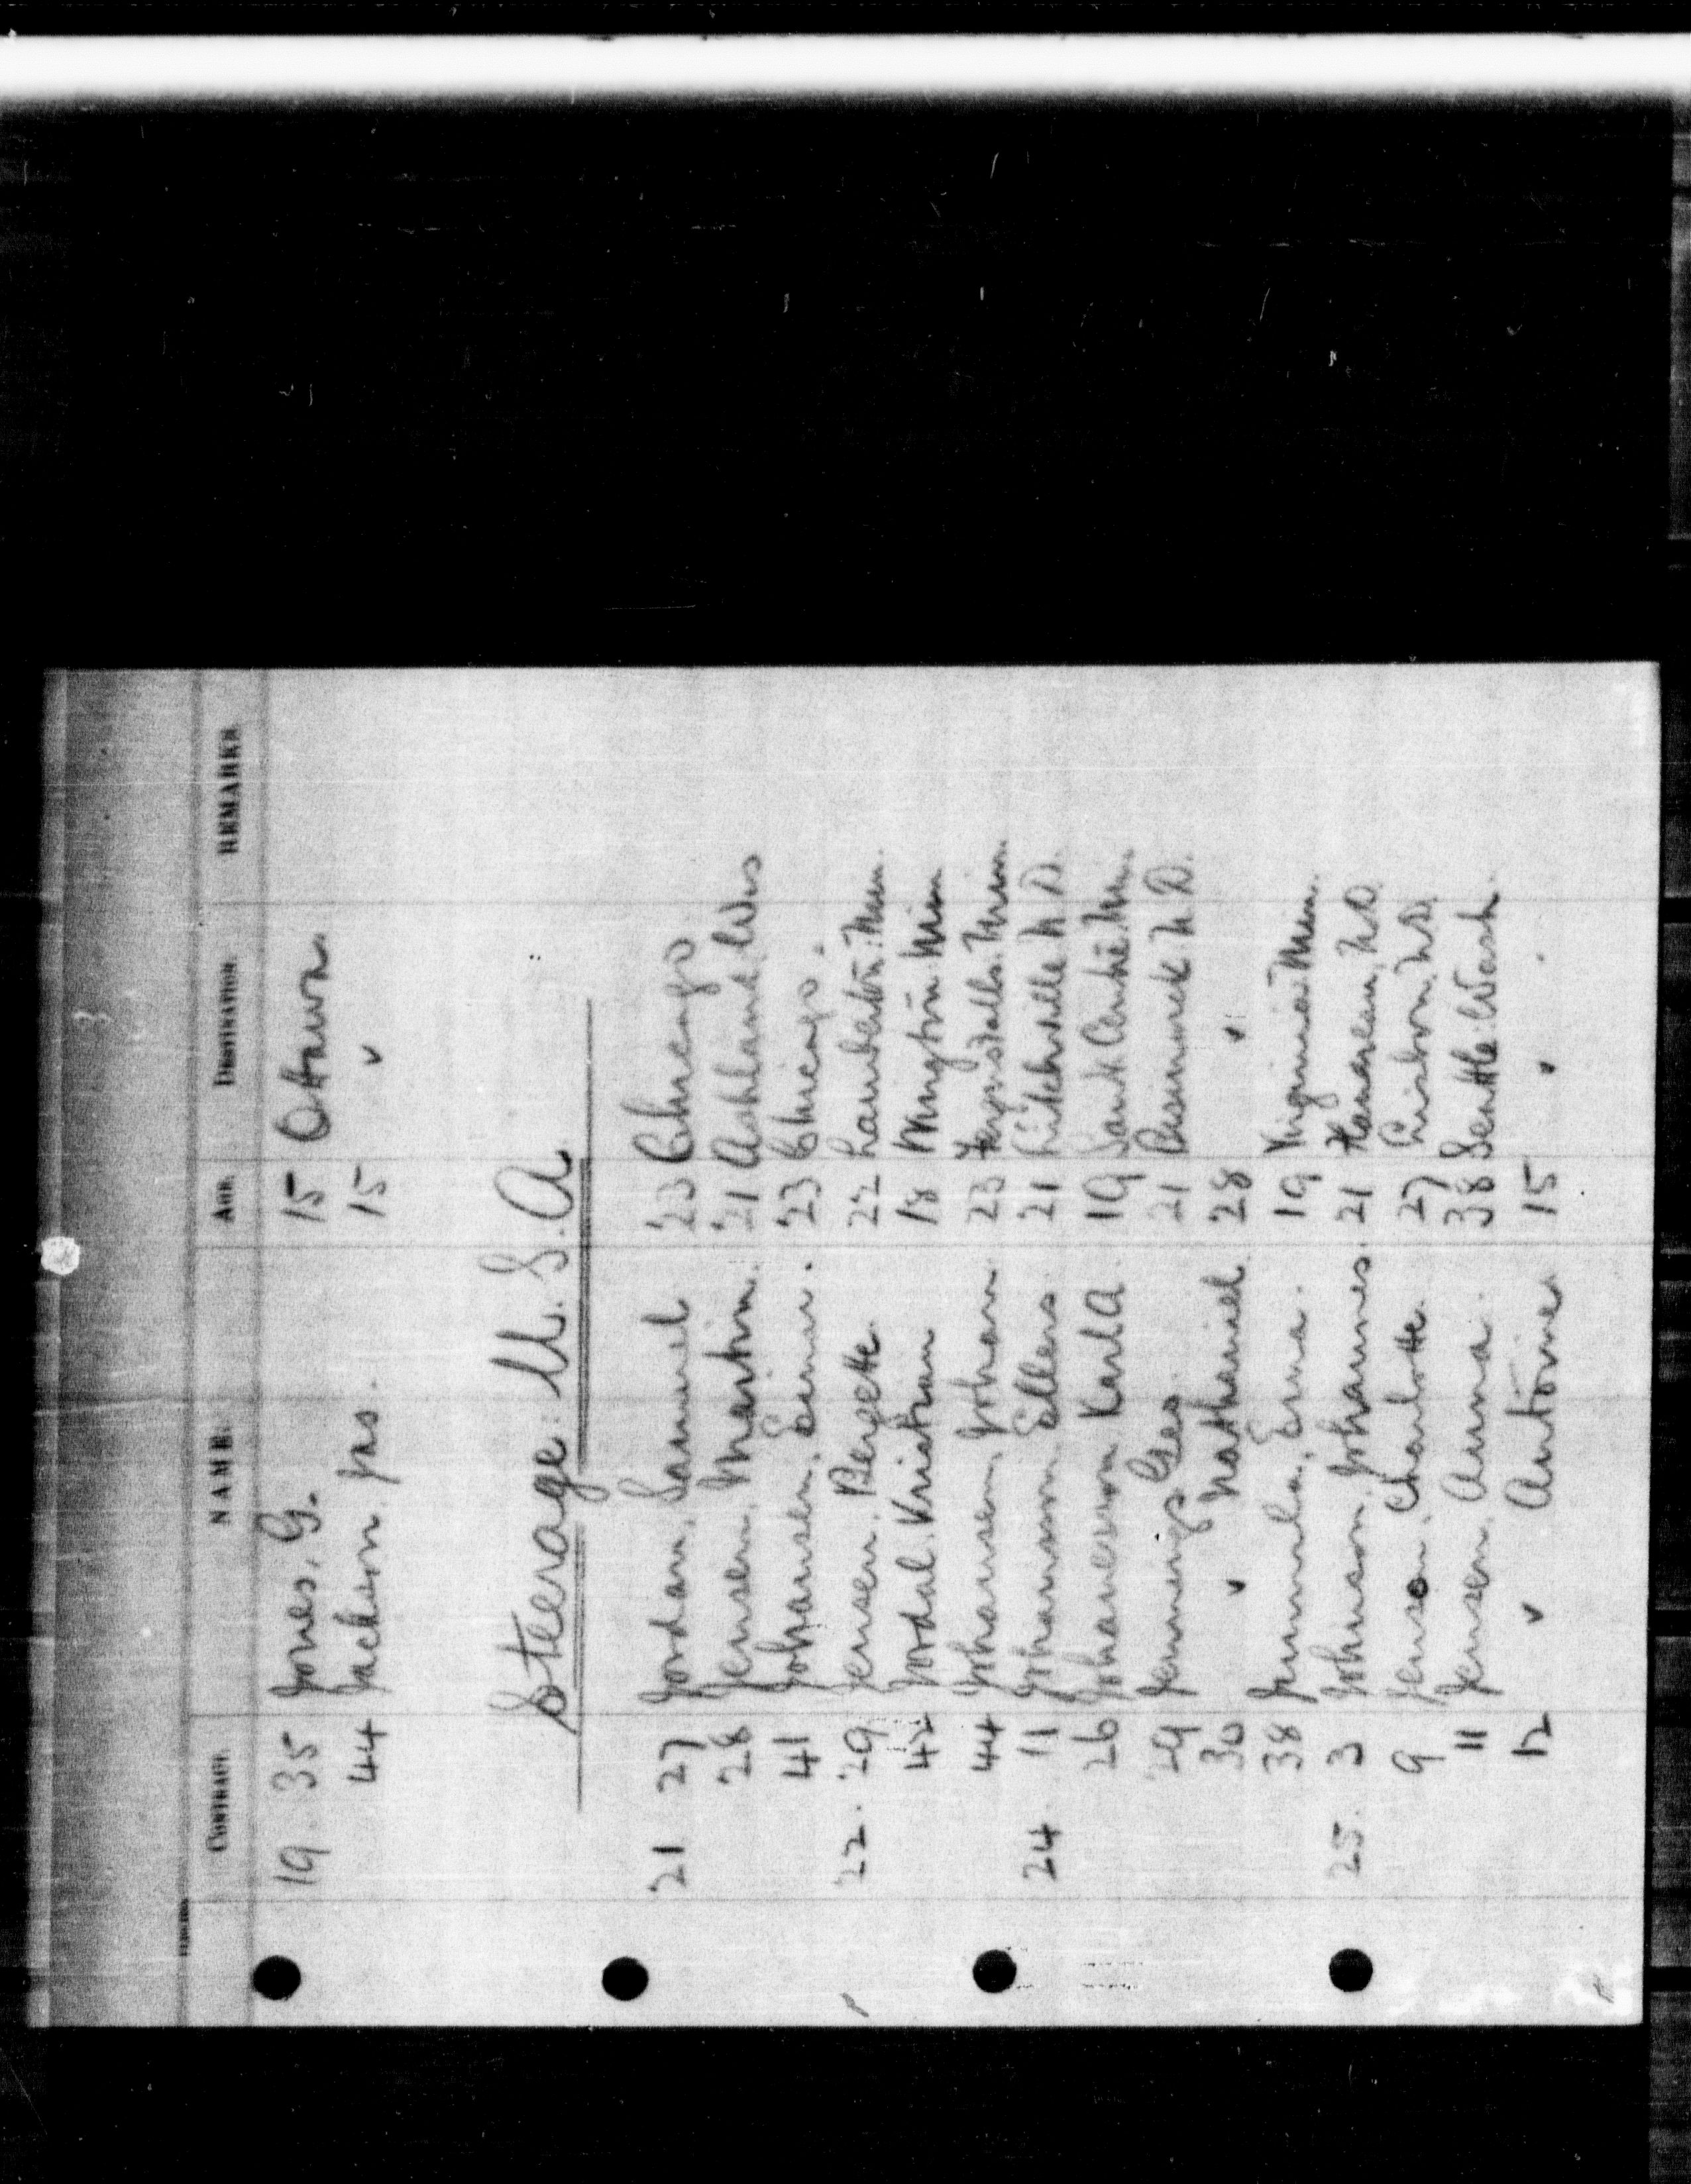 CONTRACT. NAME. AGE. DESTINATION. REMARKS.
19. 35 Jones, G. 15 Ottawa
44 Jackson Jas. 15 "
Steerage U.S.A.
21 27 Jordan, Samuel 23 Chicago
28 Jensen, Martin. 21 Ashland Wis
41 Johansen, Einar. 23 Chicago.
22. 29 Jensen, Bergette 22 Lamberton Minn.
42 Jordal Kristian 18 Minn
44 Johansen, Johan 23 Fergus Falls. Minn
24 11 Johanson Ellers 21 Litchville N D.
26 Johaneson Karl A 19 Sauk Centre. Minn.
29 Jennings Geo. 21 Bismarck N D.
30 " Nathaniel. 28 "
38 Erna. 19 Virginia Minn.
25. 3 Johnson, Johannes. 21 N D.
9 Jenson, Charlotte. 27 Lisbon N D.
11 Jensen, Anna. 38 Seattle Wash.
12 " Antoine 15 " .